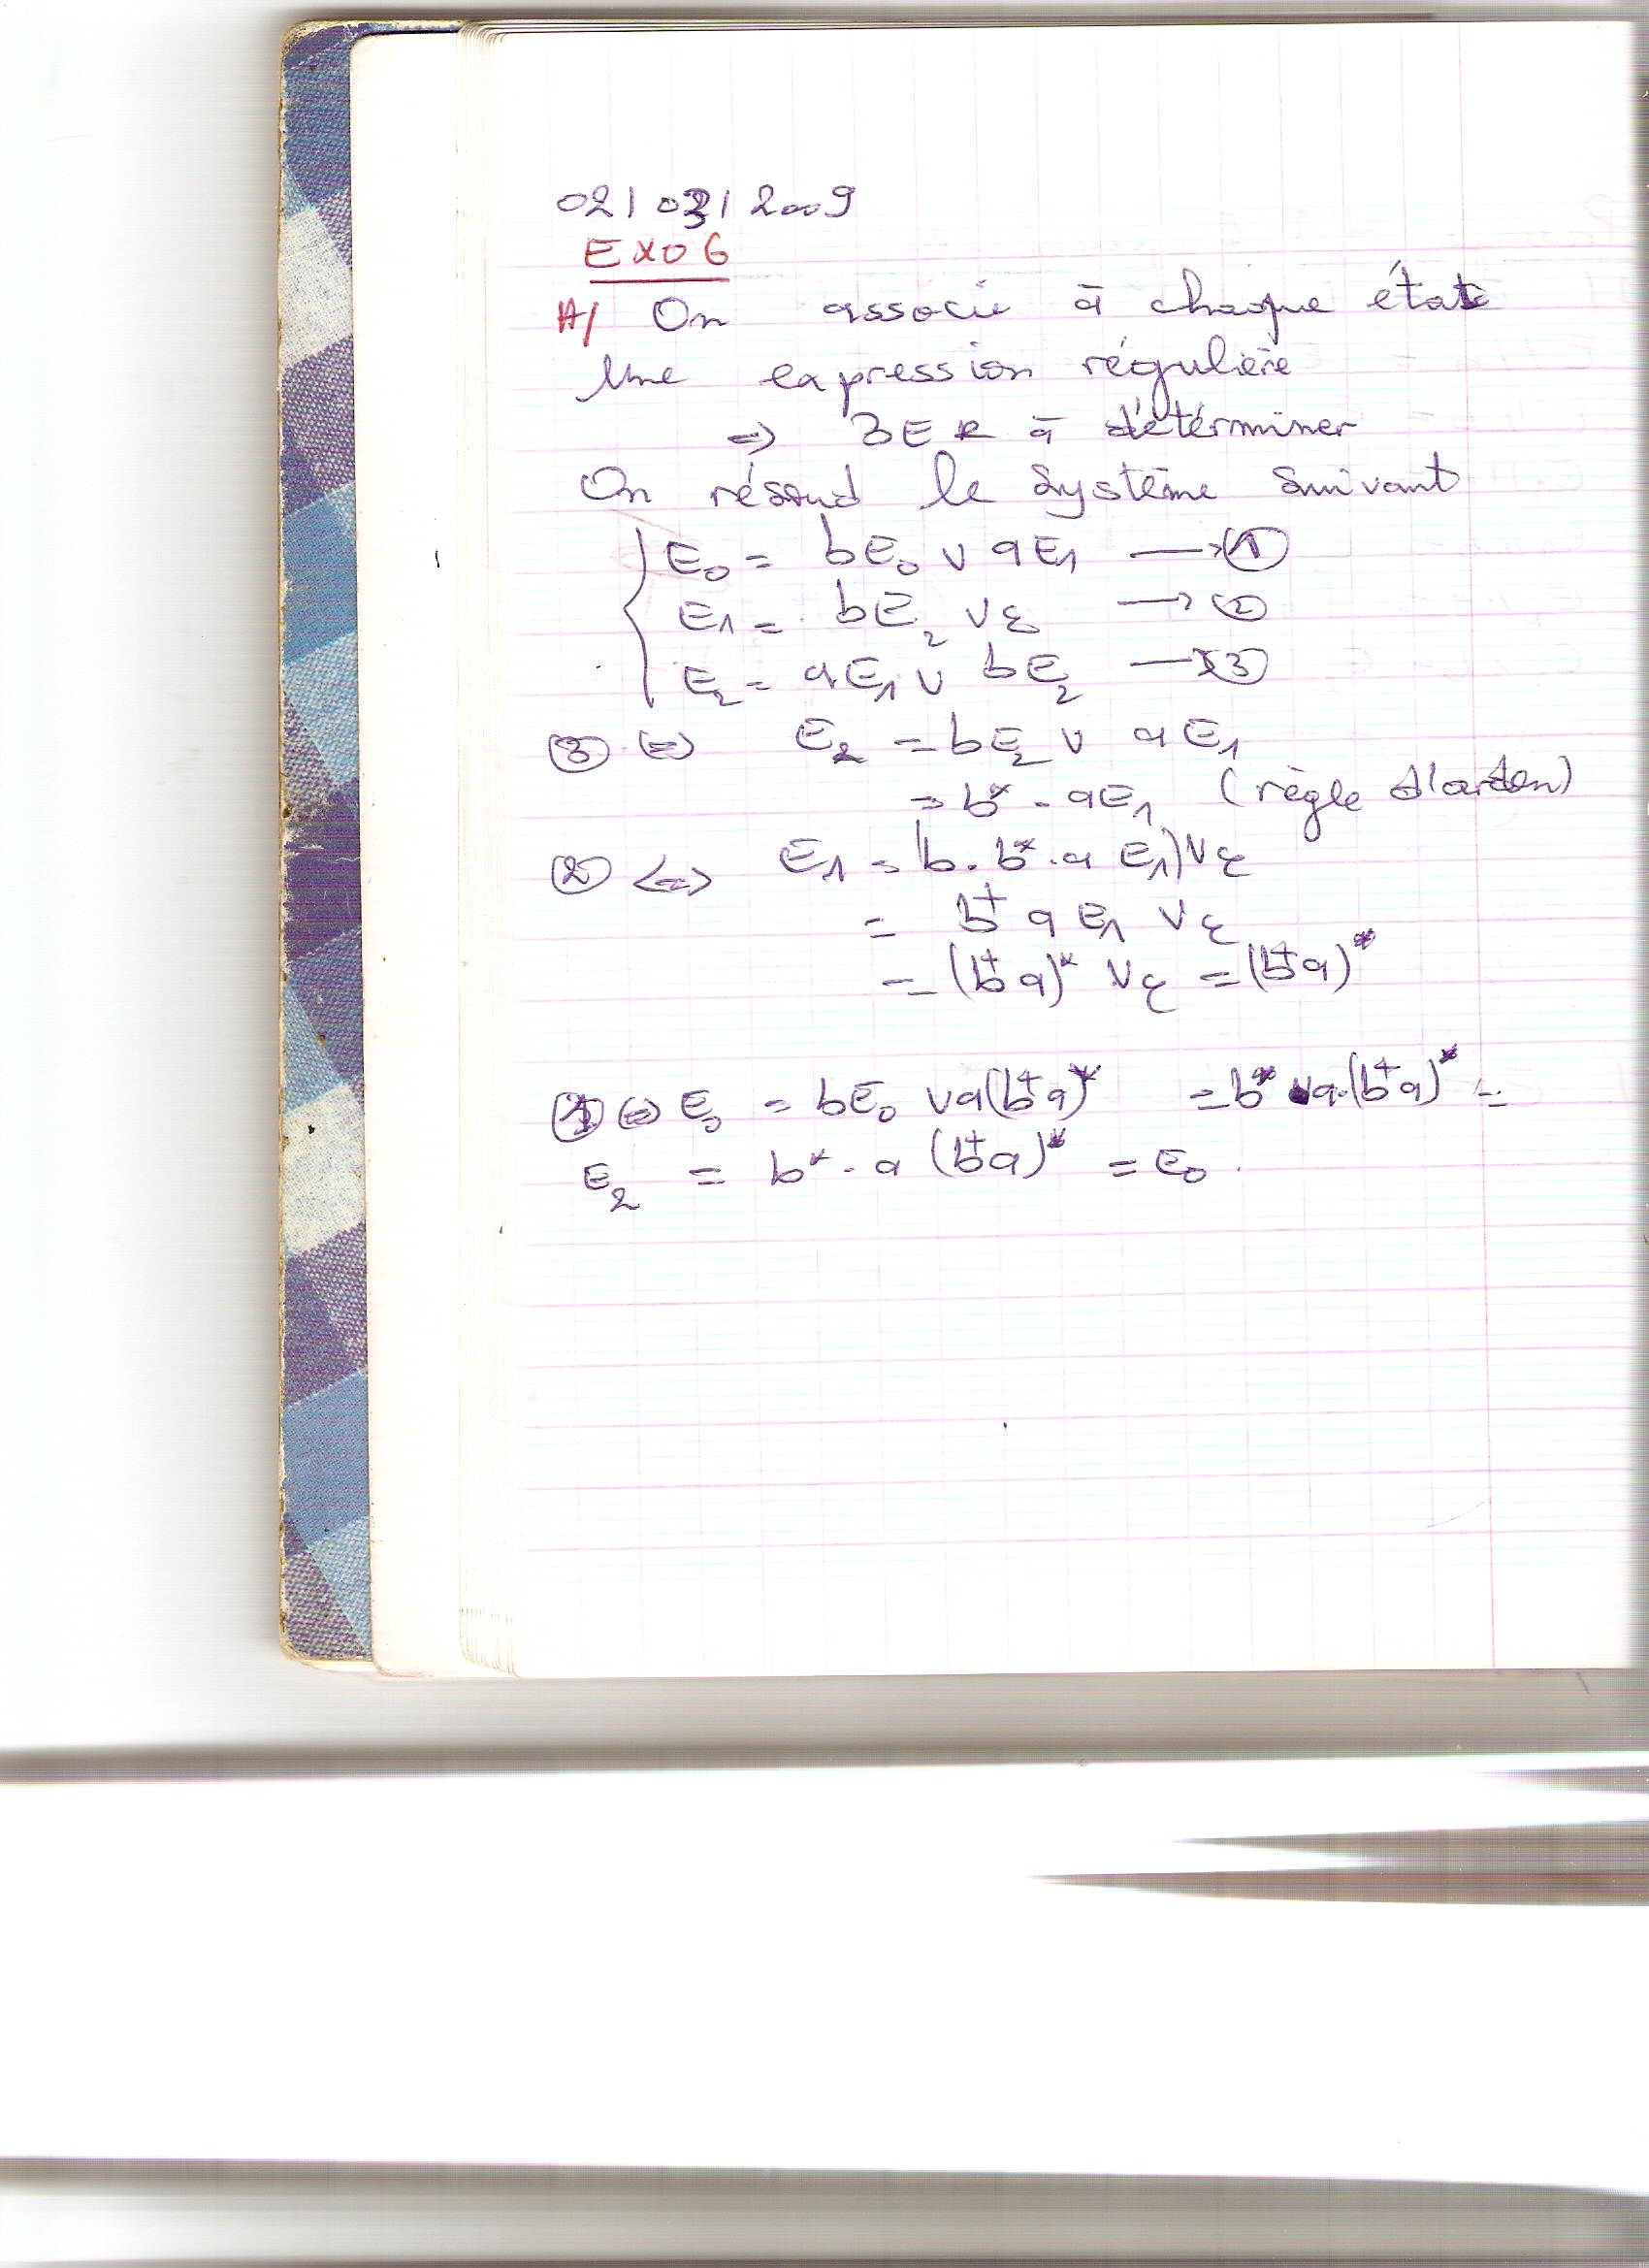 02/03/2009
EXO 6
A/ On associe à chaque état
Une expression régulière
=> 3 ER à déterminer
On résoud le système suivant
E₀ = bE₀ ∨ aE₁ → ①
E₁ = bE₂ ∨ ε → ②
E₂ = aE₁ ∨ bE₂ → ③
③ <=> E₂ = bE₂ ∨ aE₁
= b* . aE₁ (règle d'arden)
② <=> E₁ = b . b* . a E₁) ∨ ε
= b⁺ a E₁ ∨ ε
= (b⁺a)* ∨ ε = (b⁺a)*
① <=> E₀ = bE₀ ∨ a(b⁺a)* = b* . a.(b⁺a)* =
E₂ = b* . a (b⁺a)* = E₀ .